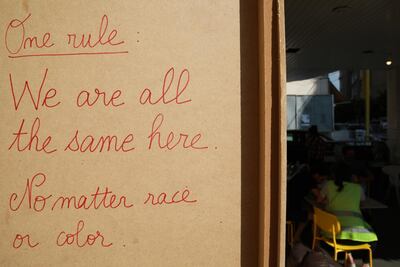 One rule :
We are all
the same here.
No matter race
or color.